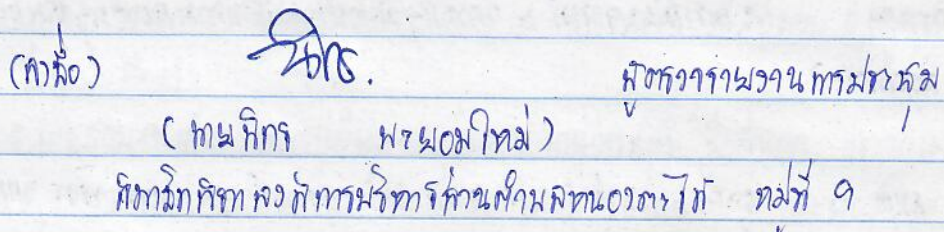 (ลงชื่อ) นิกร. ผู้ตรวจรายงานการประชุม
(นายนิกร พะยอมใหม่)
สมาชิกสภาองค์การบริหารส่วนตำบลหนองตะไก้ หมู่ที่ ๑